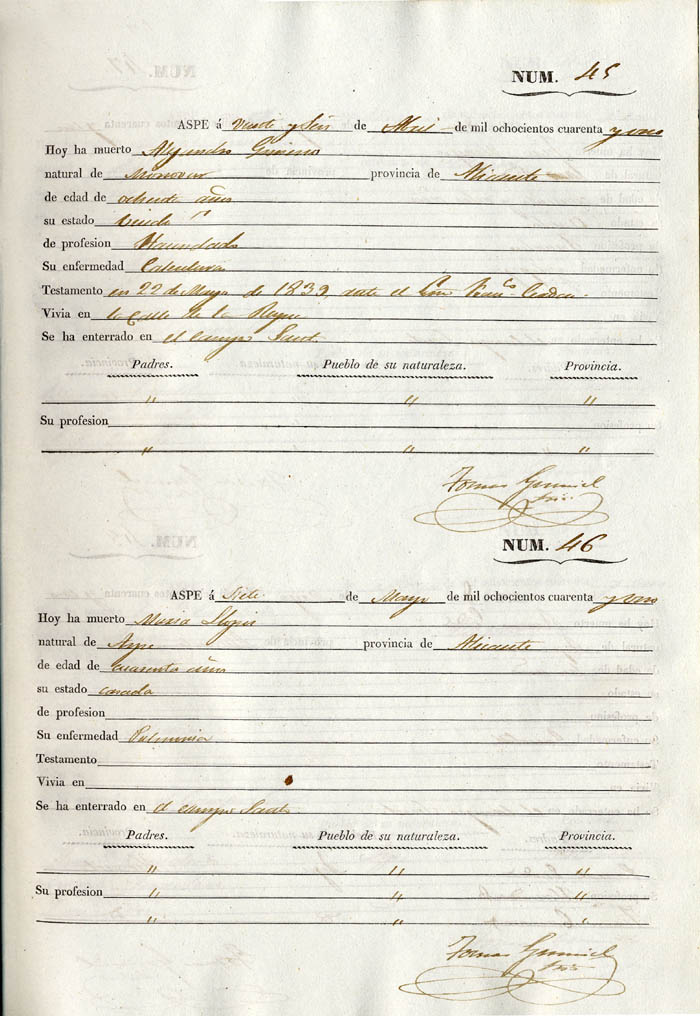 NUM. 45
ASPE á Veinte y Seis de Abril de mil ochocientos cuarenta y uno
Hoy ha muerto Alejandro
natural de Monovar provincia de Alicante
de edad de ochenta años
su estado Viudo
de profesion Haundado
Su enfermedad Calentura
Testamento en 22 de Mayo de 1839, ante el
Vivia en la Calle de la
Se ha enterrado en el campo Santo
Padres. Pueblo de su naturaleza. Provincia.
" " "
Su profesion
" " "
Tomas
NUM. 46
ASPE á Siete de Mayo de mil ochocientos cuarenta y uno
Hoy ha muerto Maria Llopis
natural de Aspe provincia de Alicante
de edad de cuarenta años
su estado casada
de profesion
Su enfermedad Pulmonia
Testamento
Vivia en
Se ha enterrado en el campo Santo
Padres. Pueblo de su naturaleza. Provincia.
" " "
Su profesion " " "
" " "
Tomas